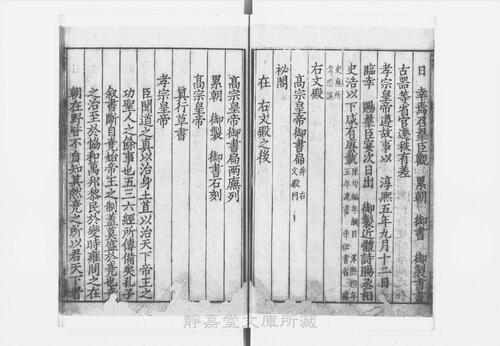 日 幸焉召羣臣觀 累朝 御書 御製書畫
古器等省官遷秩有差
孝宗皇帝遵故事以 淳熙五年九月十二日
臨幸 賜羣臣宴次日出 御製近體詩賜丞相
史浩以下咸有賡載
右文殿
高宗皇帝御書扁
祕閣
在 右文殿之後
高宗皇帝御書扁兩廡列
累朝 御製 御書石刻
高宗皇帝
真行草書
孝宗皇帝
臣聞道之真以治身土苴以治天下帝王之
功聖人之餘事也五三六經所傳備矣孔子
叙書斷自堯始帝王之制蓋莫盛於堯也
之治至於協和萬邦黎民於變時雍問之在
朝在野皆不自知其然堯之所以君天下者
静嘉堂文庫所蔵